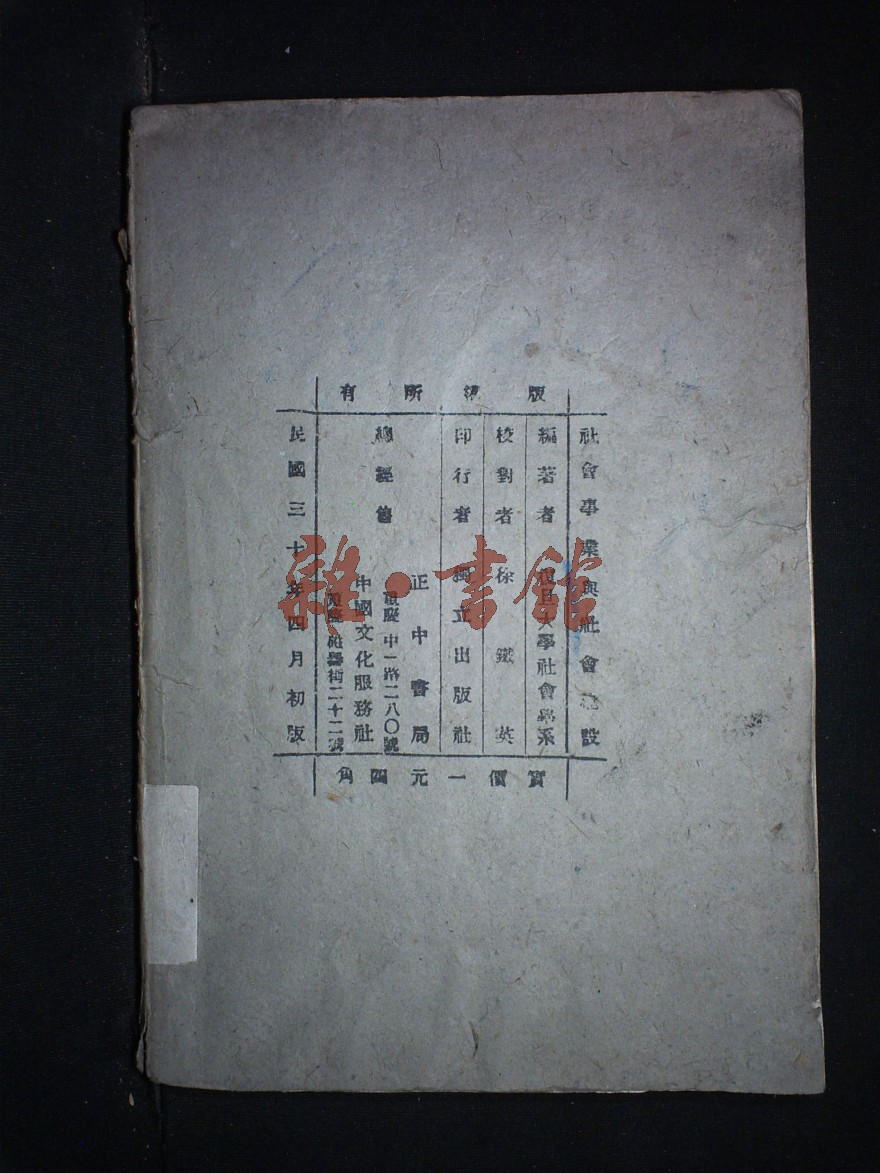 版權所有
社會事業與社會建設
編著者 復旦大學社會學系
校對者 徐鐵英
印行者 獨立出版社
總經售
正中書局
重慶中一路二八〇號
中國文化服務社
重慶磁器街二十二號
民國三十年四月初版
實價一元四角
雜·書館